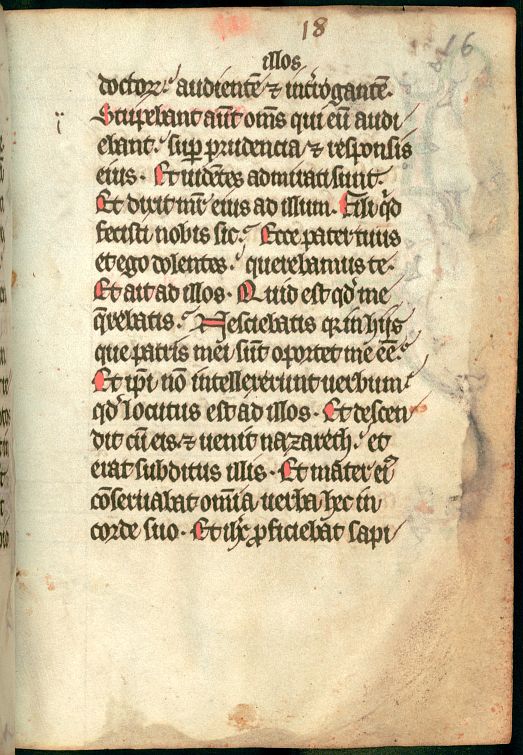 18
16
illos
doctor᷑ audientē ⁊ int̄rogantē.
Stupebant aūt om̄s qui eū audi
ebant. sup̱ prudencia ⁊ responsis
eius. Et uidentes admirati sunt.
Et dixit mr̄ eius ad illum. Fili q̄d
fecisti nobis sic. Ecce pater tuus
et ego dolentes. querebamus te.
Et ait ad illos. Quid est qd̄ me
q̄rebatis. Nesciebatis qr in hijs
que patris mei sūt oportet me eē.
Et ip̄i nō intellexerunt uerbum
qd̄ locutus est ad illos. Et descen
dit cū eis ⁊ uenit nazareth. et
erat subditus illis. Et mater eiꝰ
cōseruabat omīa uerba hec in
corde suo. Et ihc̄ ꝓficiebat sapi